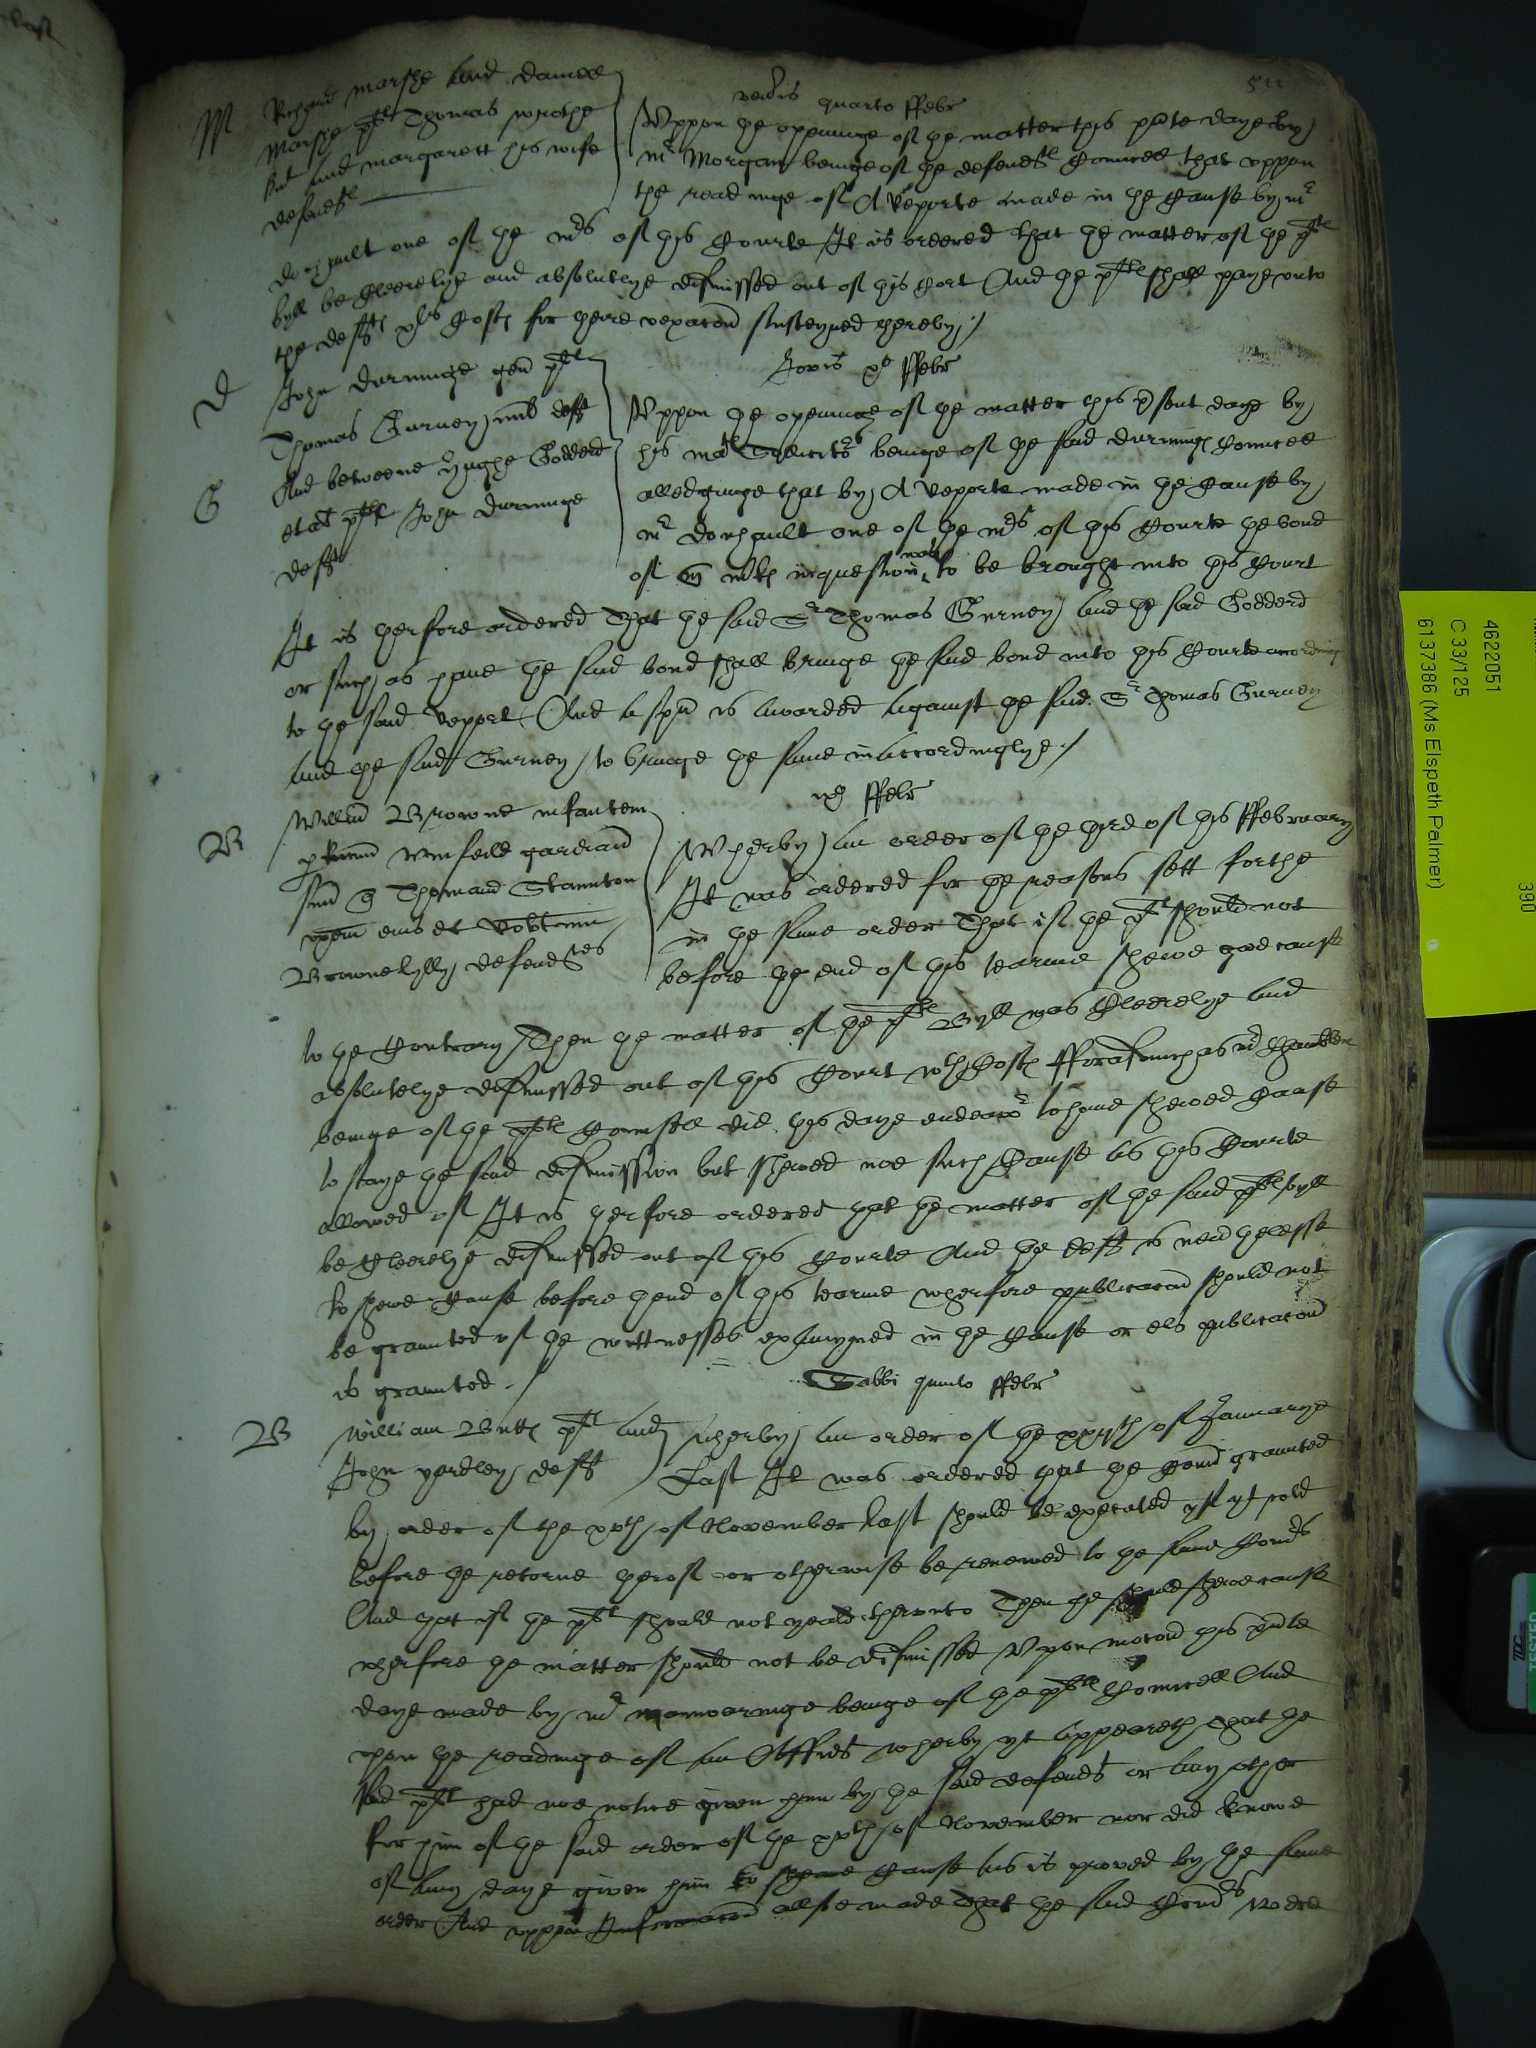 511
veneris quarto ffebr
M Richard Marshe and Daniell
Marshe plts Thomas Wrothe
knt and Margarett his wife
defendts
Uppon the openinge of the matter this pnte daye by
Mr Morgan beinge of the defendts Councell that uppon
the readinge of A Reporte made in the Cause by Mr
Donhault one of the mrs of this Courte It is ordered that the matter of the plts
byll be Cleerelye and absolutelye dismissed out of this Cort And the plts shall paye unto
the defts xls Costs for theire vexacon susteyned thereby./
Jovis xo ffebr
D John Durninge gen plt
Thomas Gurney mil deft
G And betweene Hughe Godderd
et al plts John Durninge
deft
Uppon the openinge of the matter this psent daye by
his mats Sollicitor beinge of the said Durnings Councell
alledginge that by A Reporte made in the Cause by
Mr Donhault one of the mrs of this Courte the bond
of mrks in question was to be brought into this Court
It is therfore ordered That the said Sr Thomas Gurney and the said Godderd
or such as have the said bond shall bringe the said bond into this Courte accordinge
to the said Report And a spa is awarded against the said Sr Thomas Gurney
and the said Gurney to bringe the same in accordinglye ./
ffebr
B Willm Browne infantem
p Wmfeild gardianu
suu q Thomam Staunton
uxem eius et Robtum
Brownelylly defendtes
Wherby an order of the third of this ffebruary
It was ordered for the reasons sett forthe
in the same order That if the plt should not
before the end of this tearme shewe good cause
to the Contrary Then the matter of the plts Byll was Cleerelye and
absolutelye dismissed out of this Court wth Costs fforasmuch as Mr Chamberleyn
beinge of the plts Counsell did this daye endeavor to have shewed Cause
to staye the said dismission but shewed noe such Cause as this Courte
allowed of It is therfore ordered that the matter of the said plts byll
be Cleerelye dismissed out of this Courte And the deft is nevrthelesse
to shewe Cause before thend of this tearme wherfore publicacon should not
be graunted of the wittnesses examyned in the Cause or els publicacon
is graunted ./
Sabbi quinto ffebr
B William Butts plt and
John Yardley deft
Wherby an order of the xxvith of Januarye
Last It was ordered that the Comn graunted
by order of the xxth of November last should be executed yf yt cold
before the retorne therof or otherwise be renewed to the same Comrs
And that if the plt should not yeald therunto Then he should shewe cause
wherfore the matter should not be dismissed Upon motion this pnte
daye made by Mr Manwaringe beinge of the plts Councell And
upon the readinge of an Affidt wherby yt appeareth that the
said plt had noe notice given him by the said defendt or any other
for him of the said order of the xxth of November nor did knowe
of any daye given him to shewe Cause as is proved by the same
order And uppon Informacon allso made that the said Comrs
4622051
C 33/125
6137386 (Ms Elspeth Palmer)
390